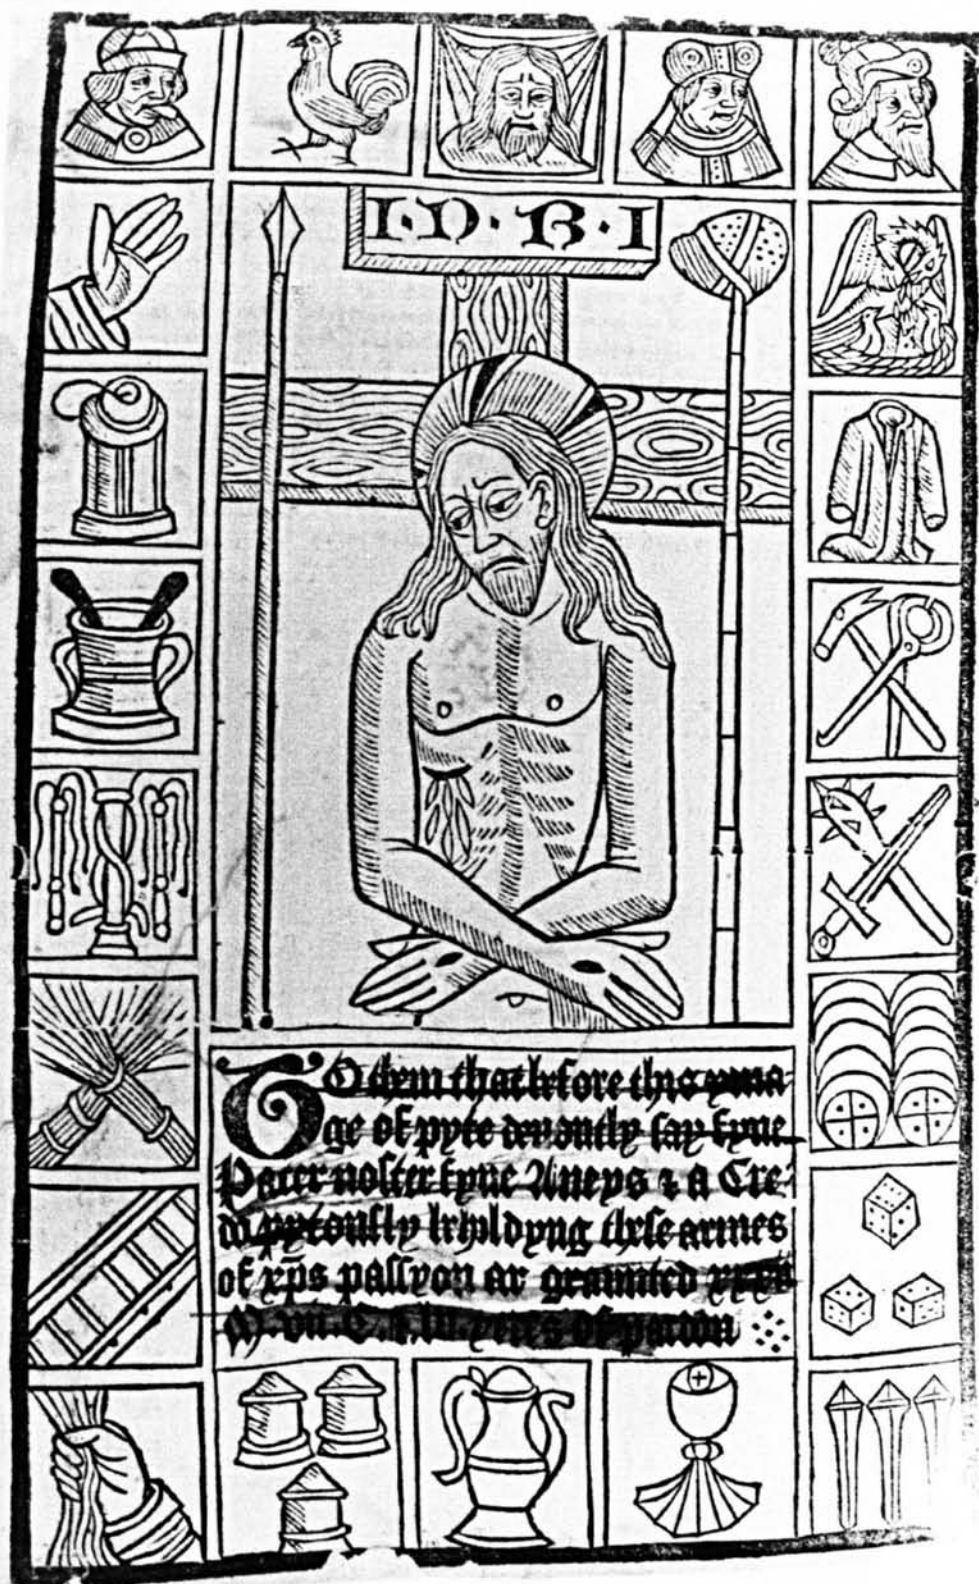 I·N·R·I
TO them that before this yma
ge of pyte deuoutly say fyue
Pater noster fyue Aueys & a Cre
do pytously beholdyng these armes
of xp̄s passyon ar graunted
M. vii. C. & lv. yeres of pardon